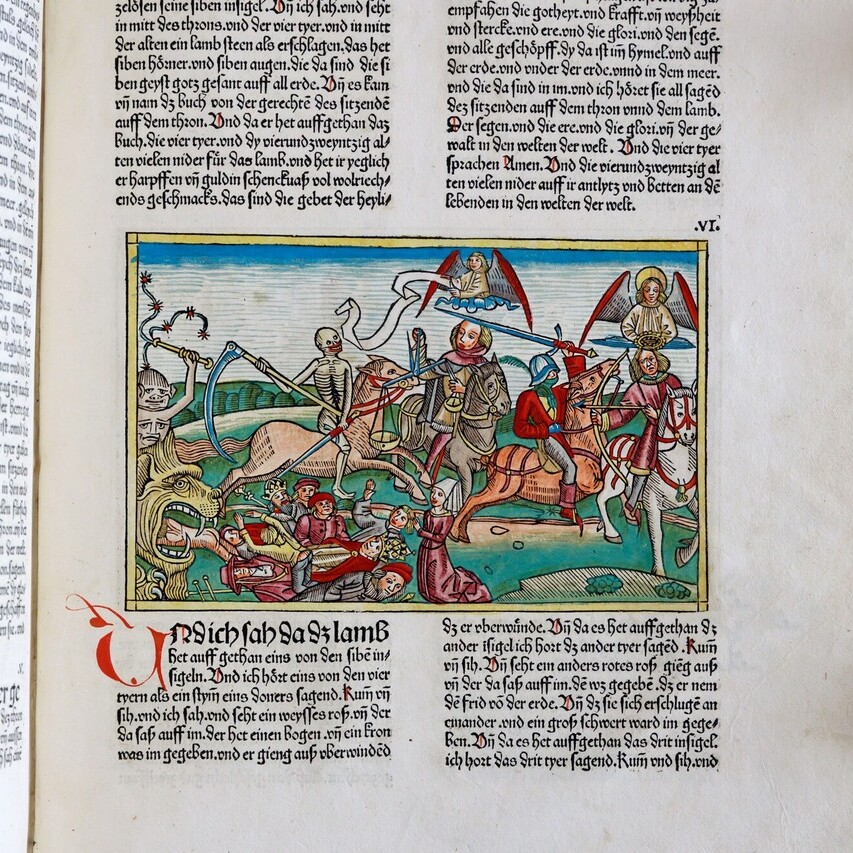 zelösen seine siben insigel. Vñ ich sah. vnd seht
in mitt des throns. vnd der vier tyer. vnd in mitt
der alten ein lamb steen als erschlagen. das het
siben hörner. vnd siben augen. die da sind die si
ben geyst gotz gesant auff all erde. Vñ es kam
vñ nam dz buch von der gerechtē des sitzendē
auff dem thron. Vnd da er het auffgethan daz
buch. die vier tyer. vnd dy vierundzweyntzig al-
ten vielen nider für das lamb. vnd het ir yeglich
er harpffen vñ guldin schenckuaß vol wolriech-
ends geschmacks. das sind die gebet der heyli-
empfahen die gotheyt. vnd krafft. vñ weyßheit
vnd stercke. vnd ere. vnd die glori. vnd den segē.
vnd alle geschöpff. dy da ist im hymel. vnd auff
der erde. vnd vnder der erde. vnnd in dem meer.
vnd die da sind in im. vnd ich höret sie all sagēd
dez sitzenden auff dem thron vnnd dem lamb.
Der segen. vnd die ere. vnd die glori. vñ der ge-
walt in den welten der welt. Vnd die vier tyer
sprachen Amen. Vnd die vierundzweyntzig al
ten vielen nider auff ir antlytz vnd betten an dē
lebenden in den welten der welt.
.VI.
Vnd ich sah da dz lamb
het auff gethan eins von den sibē in-
sigeln. Vnd ich hört eins von den vier
tyern als ein stym̄ eins doners sagend. Kum̄ vñ
sih. vnd ich sah. vnd seht ein weysses roß. vñ der
da saß auff im. der het einen bogen. vñ ein kron
was im gegeben. vnd er gieng auß vberwindēd
dz er vberwūnde. Vñ da es het auffgethan dz
ander isigel ich hort dz ander tyer sagēd. Kum̄
vñ sih. Vñ seht ein anders rotes roß gieng auß
vñ der da saß auff im. dē wz gegebē. dz er nem
dē frid vō der erde. Vñ dz sie sich erschlugen an
einander. vnd ein groß schwert ward im gege-
ben. Vñ da es het auffgethan das drit insigel.
ich hort das drit tyer sagend. Kum̄ vnd sih. vnd